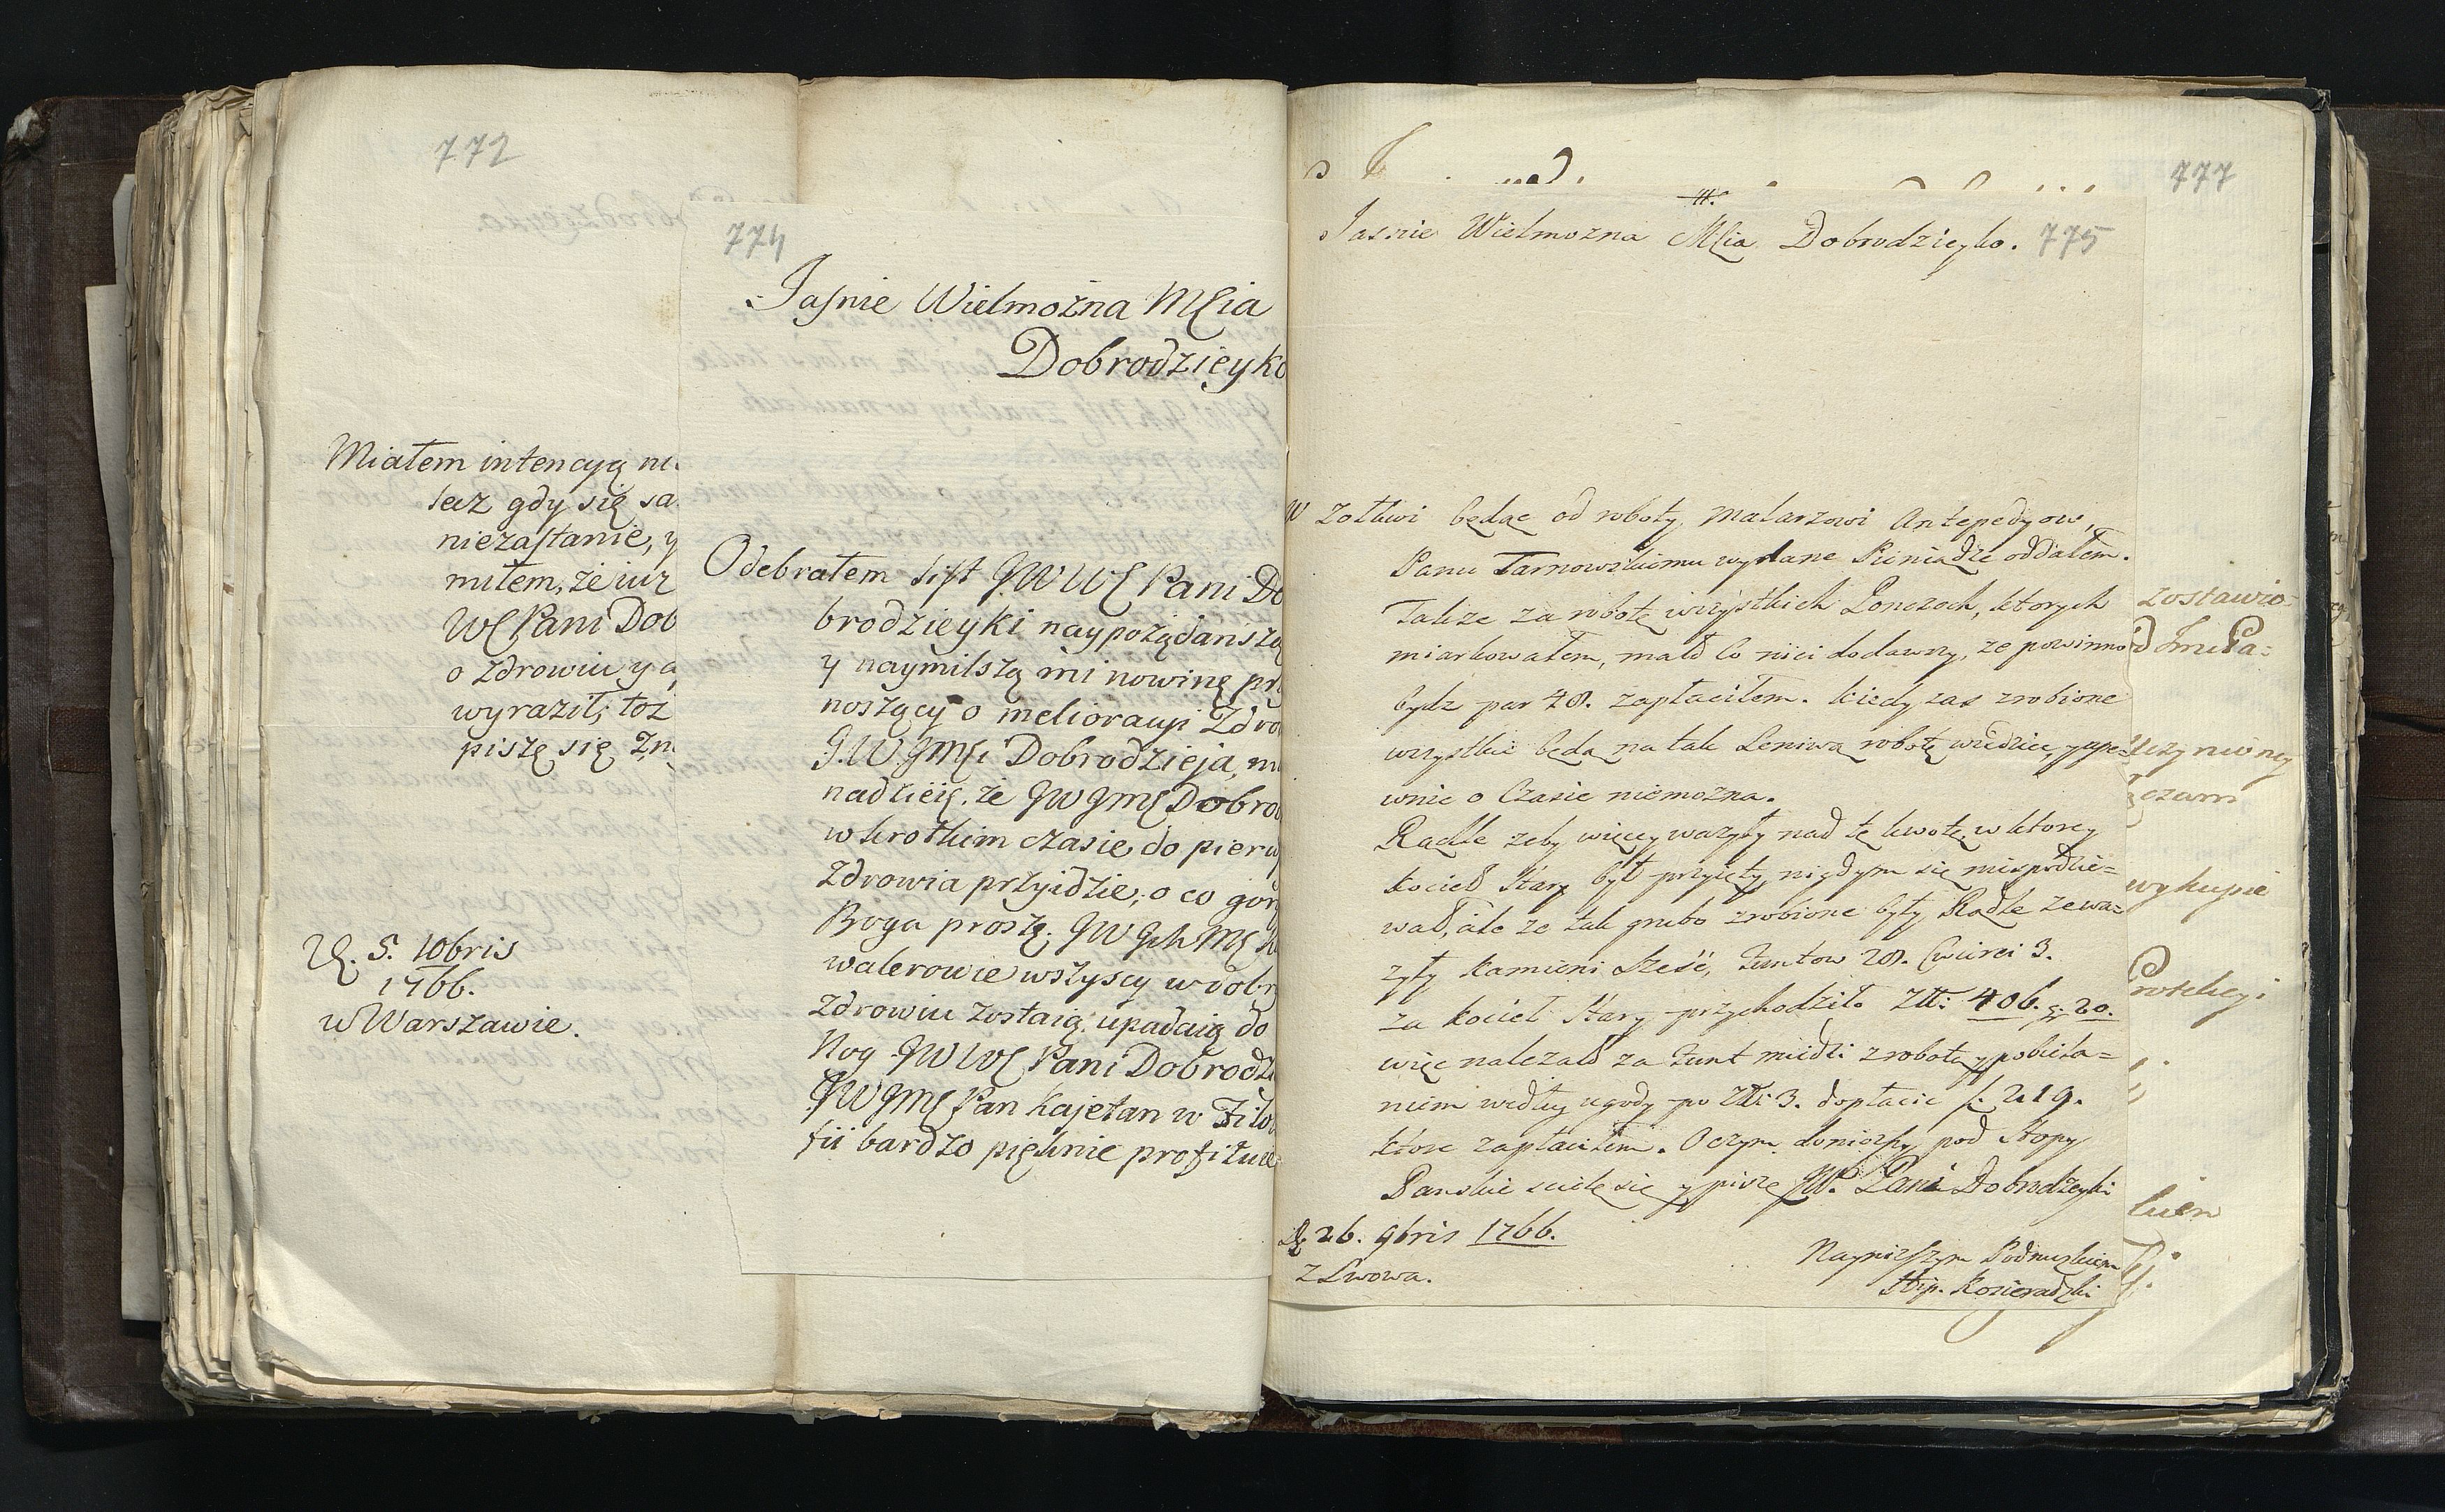 772
Miałem intencyą
lecz gdy się
niezastanie, y
miłem, że iuz
WC Pani Dob
o zdrowiu y
wyraził, toż
piszę się
D. 5. 10bris
1766.
w Warszawie.
774
Jasnie Wielmożna MCia
Dobrodzieyko
Odebrałem list JW WC Pani Do
brodzieyki naypożądanszą
y naymilszą mi nowinę
noszący o melioracyi Zdro
J.W.JMCi Dobrodzieja,
nadzieię, że JW JMC Dobro
w krotkim czasie do pierw
Zdrowia przyidzie, o co
Boga proszę. JW Ich MC
walerowie wszyscy w dobr
Zdrowiu zostaią, upadaią do
Nog JW WC Pani Dobrodzi
JW JMC Pan Kajetan w Filo
fii bardzo pięknie profituie
777
Jasnie Wielmozna MCia Dobrodzieyko. 775
W Zołkwi będąc od roboty, Malarzowi Antepedyow,
Panu Tarnowskiemu wydane Pieniądze oddałem.
Takze za robotę wszystkich Ponczoch, ktorych
miarkowałem, mało co nici dodawszy, ze powinno
bydz par 48. zapłaciłem. kiedy zas zrobione
wszystkie będą na tak Leniwą robotę widzieć, y upe=
wnic o Czasie niemozna.
Rądle zeby więcey wazyły nad tę kwotę, w ktorey
kocieł stary był przyięty, nigdym się niespodzie=
wał, ale ze tak grubo zrobione były Rądle zewa=
zyły Kamieni Szesć, Funtow 28. Cwierci 3.
za kocieł Stary przychodziło Złł: 406. g. 20.
więc nalezało za Funt miedzi z robotą y pobiela=
niem według ugody po Złł: 3. dopłacic f. 219.
ktore zapłaciłem. O czym doniozszy pod Stopy
Panskie scielę się y piszę JW. Pani Dobrodzeyki
D. 26. 9bris 1766.
z Lwowa.
Nayniższym Podnuzkiem
Hip. Kozieradzki
zostawio=
wykupie